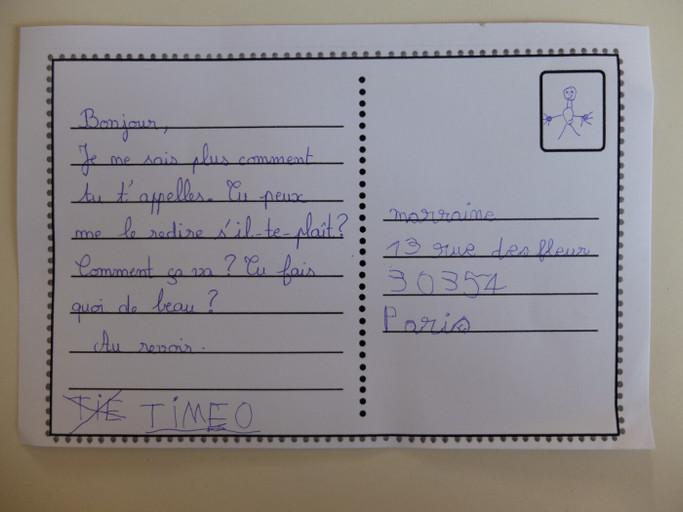 Bonjour,
Je ne sais plus comment
tu t'appelles. Tu peux
me le redire s'il-te-plaît?
Comment ça va ? Tu fais
quoi de beau ?
Au revoir.
TiE TiMEO
marraine
13 rue des fleur
30354
Paris